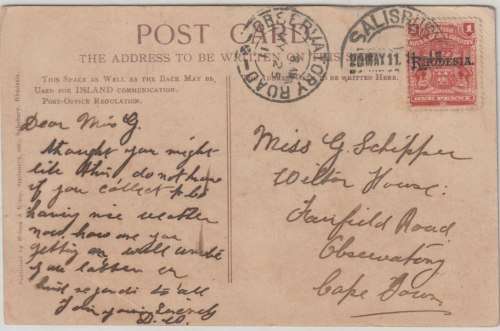 POST CARD
THE ADDRESS TO BE WRITTEN ON THIS SIDE
THIS SPACE AS WELL AS THE BACK MAY BE
USED FOR ISLAND COMMUNICATION.
POST-OFFICE REGULATION.
BE WRITTEN HERE.
OBSERVATORY ROAD
SALISBURY
20 MAY 11.
RHODESIA.
ONE PENNY
Dear Miss G.
thought you might
like this, do not know
if you collect p.c.
having nice weather
now how are you
getting on will write
you later on
kind regards to all
Yours Sincerely
Miss G Schipper
Wilton House:
Fairfield Road
Observatory
Cape Town